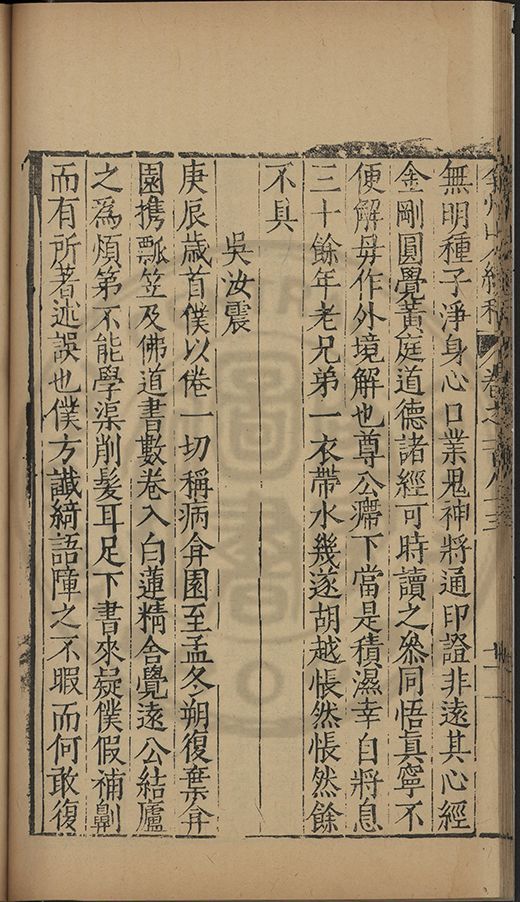 弇州山人續稿 卷之一百八十三
無明種子淨身心口業鬼神將通印證非遠其心經
金剛圓覺黃庭道德諸經可時讀之叅同悟真寧不
便解毋作外境解也尊公癤下當是積濕幸自將息
三十餘年老兄弟一衣帶水幾遂胡越悵然悵然餘
不具
吳汝震
庚辰歲首僕以倦一切稱病弇園至孟冬朔復棄弇
園攜瓢笠及佛道書數卷入白蓮精舍覺遠公結廬
之爲煩第不能學渠削髮耳足下書來疑僕假補劓
而有所著述誤也僕方讖綺語障之不暇而何敢復